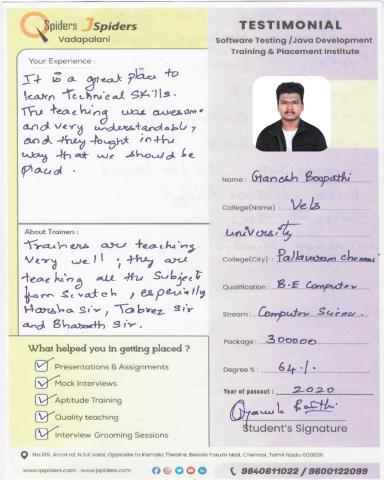 QSpiders JSpiders
Vadapalani
TESTIMONIAL
Software Testing /Java Development
Training & Placement Institute
Your Experience :
It is a great place to
learn Technical Skills.
The teaching was awesome
and very understandably,
and they tought in the
way that we should be
placed.
Name : Ganesh Boopathi
College(Name) : Vels
university
College(City) : Pallavaram Chennai
Qualification : B.E Computer
Stream : Computer Science.
Package : 300000
Degree % : 64.%
Year of passout : 2020
Student's Signature
About Trainers :
Trainers are teaching
very well ; they are
teaching all the Subject
from Scratch , especially
Harsha Sir, Tabrez Sir
and Bharath Sir.
What helped you in getting placed ?
Presentations & Assignments
Mock Interviews
Aptitude Training
Quality teaching
Interview Grooming Sessions
No.199, Arcot rd, N.S.K salai, Opposite to Kamala Theatre, Beside Forum Mall, Chennai, Tamil Nadu 600026
www.qspiders.com www.jspiders.com
9840611022 / 9600122099